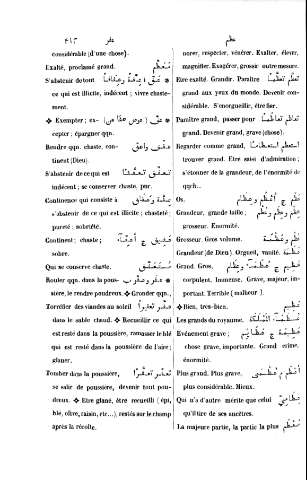 عظم
عفر
٤١٣
norer, respecter, vénérer. Exalter, élever,
magnifier. Exagérer, grossir outre mesure.
Etre exalté. Grandir. Paraître تعظّم تعظّمًا
grand aux yeux du monde. Devenir con-
sidérable. S'enorgueillir, être fier.
Paraître grand, passer pour تعاظم تعاظمًا
grand. Devenir grand, grave (chose).
Regarder comme grand, استعظم استعظامًا
trouver grand. Etre saisi d'admiration ;
s'étonner de la grandeur, de l'énormité de
qqch..
Os. عظم ج أعظُم وعظام
Grandeur, grande taille ;
grosseur. Enormité.
Grosseur. Gros volume.
Grandeur (de Dieu). Orgueil, vanité. عظمة
Grand. Gros,
corpulent. Immense. Grave, majeur, im-
portant. Terrible (malheur).
❖ Bien, très-bien. عظيم
Les grands du royaume.
Evénement grave ; عظيمة ج عظائم
chose grave, importante. Grand crime.
énormité.
Plus grand. Plus grave. أعظم م عظمى
plus considérable. Mieux.
Qui n'a d'autre mérite que celui عظامي
qu'il tire de ses ancêtres.
La majeure partie, la partie la plus معظم
considérable (d'une chose).
Exalté, proclamé grand. معظّم
S'abstenir de tout
ce qui est illicite, indécent ; vivre chaste-
ment.
❖ Exempter ; ex-
cepter ; épargner qqn.
Rendre qqn. chaste, con-
tinent (Dieu).
S'abstenir de ce qui est تعفّف
indécent ; se conserver chaste, pur.
Continence qui consiste à عفّة وعفاف
s'abstenir de ce qui est illicite ; chasteté ;
pureté ; sobriété.
Continent ; chaste ; عفيف ج أعفّاء
sobre.
Qui se conserve chaste. متعفّف
Rouler qqn. dans la pous-
sière, le rendre poudreux. ❖ Gronder qqn.,
Torréfier des viandes au soleil عفّر تعفيرًا
dans le sable chaud. ❖ Recueillir ce qui
est resté dans la poussière, ramasser le blé
qui est resté dans la poussière de l'aire ;
glaner.
Tomber dans la poussière, تعفّر تعفّرًا
se salir de poussière, devenir tout pou-
dreux. ❖ Etre glané, être recueilli (épi,
blé, olive, raisin, etc...), restés sur le champ
après la récolte.